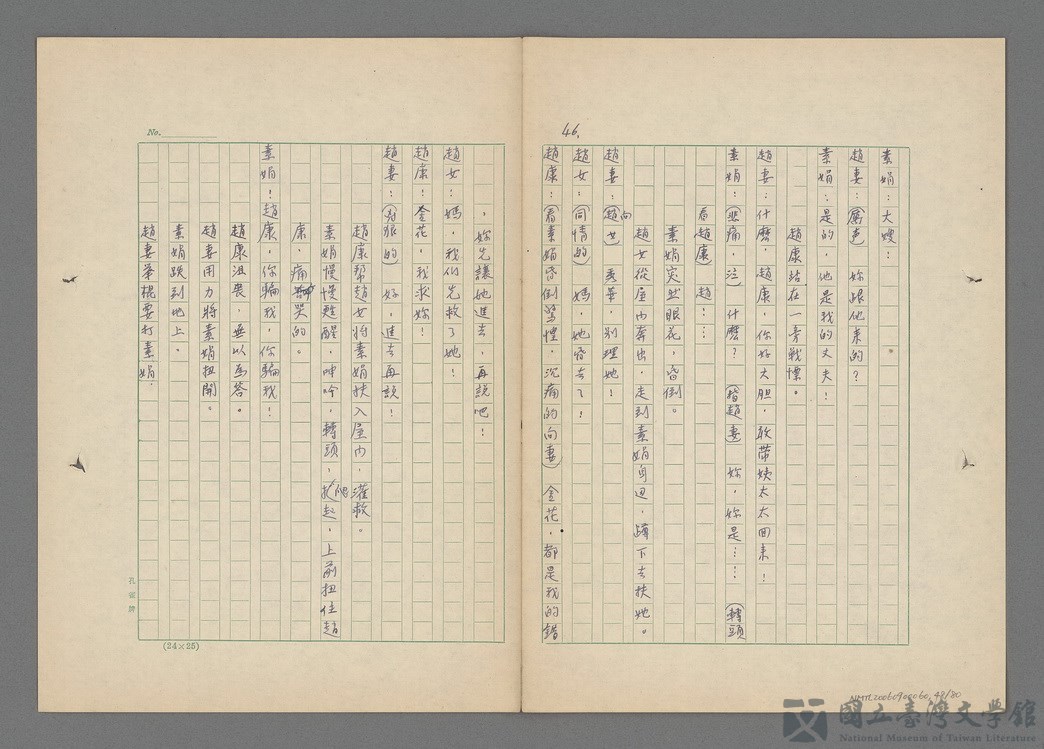 46.
素娟：大嫂：
趙妻：（厲色）妳跟他来的？
素娟：是的，他是我的丈夫！
趙康站在一旁戰慄。
趙妻：什麼，趙康，你好大胆，敢带姨太太回来！
素娟：（悲痛，泣）什麼？（指趙妻）妳，妳是……（轉頭
看趙康）趙！…
素娟突然眼花，昏倒。
趙女從屋内奔出，走到素娟身边，蹲下去扶她。
趙妻：（向趙女）秀華，别理她！
趙女：（同情的）媽，她昏去了！
趙康：（看素娟昏倒驚惶，沉痛的向妻）金花，都是我的錯
，妳先讓她進去，再說吧！
趙女：媽，我们先救了她！
趙康！金花，我求妳！
趙妻：（狠狠的）好，進去再說！
趙康幫趙女將素娟扶入屋内，灌救。
素娟慢慢甦醒，呻吟，轉頭，爬起，上前扭住趙
康，痛哭的。
素娟！趙康，你騙我，你騙我！
趙康沮喪，無以為答。
趙妻用力將素娟扭開。
素娟跌到地上。
趙妻举棍要打素娟.
No.
孔雀牌
(24×25)
NMTL20060900060, 49/80
國立臺灣文學館
National Museum of Taiwan Literature